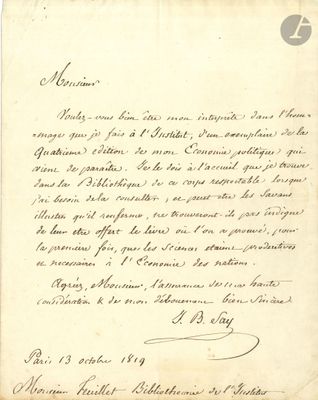 Monsieur
Voulez-vous bien être mon interprète dans l'hom-
-mage que je fais à l'Institut, d'un exemplaire de la
Quatrieme edition de mon Economie politique qui
vient de paraître. Je le dois à l'accueil que je trouve
dans la Bibliothèque de ce corps respectable lorsque
j'ai besoin de la consulter, et peut etre les Savans
illustres qu'il renferme, ne trouveront-ils pas indigne
de leur etre offert le livre où l'on a prouvé, pour
la première fois, que les Sciences étaient productives
et necessaires à l'Economie des nations.
Agréez, Monsieur, l'assurance de ma haute
considération & de mon dévouement bien Sincère
J. B. Say
Paris 13 octobre 1819
Monsieur Feuillet Bibliothecaire de l'Institut